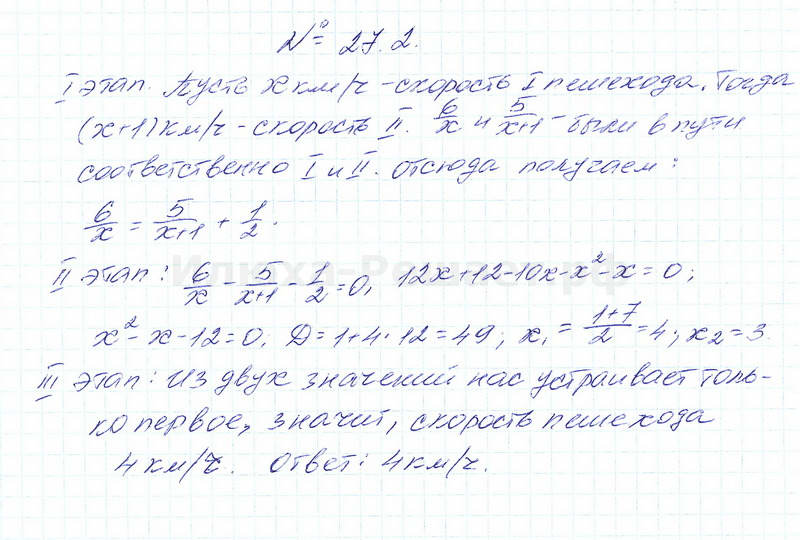 № 27.2.
I этап. Пусть x км/ч - скорость I пешехода. Тогда
(x+1) км/ч - скорость II. 6/x и 5/(x+1) - были в пути
соответственно I и II. Отсюда получаем:
6/x = 5/(x+1) + 1/2.
II этап: 6/x - 5/(x+1) - 1/2 = 0, 12x+12-10x-x²-x=0;
x²-x-12=0; D=1+4·12=49; x₁=(1+7)/2=4; x₂=3.
III этап: Из двух значений нас устраивает толь-
ко первое, значит, скорость пешехода
4 км/ч. Ответ: 4 км/ч.